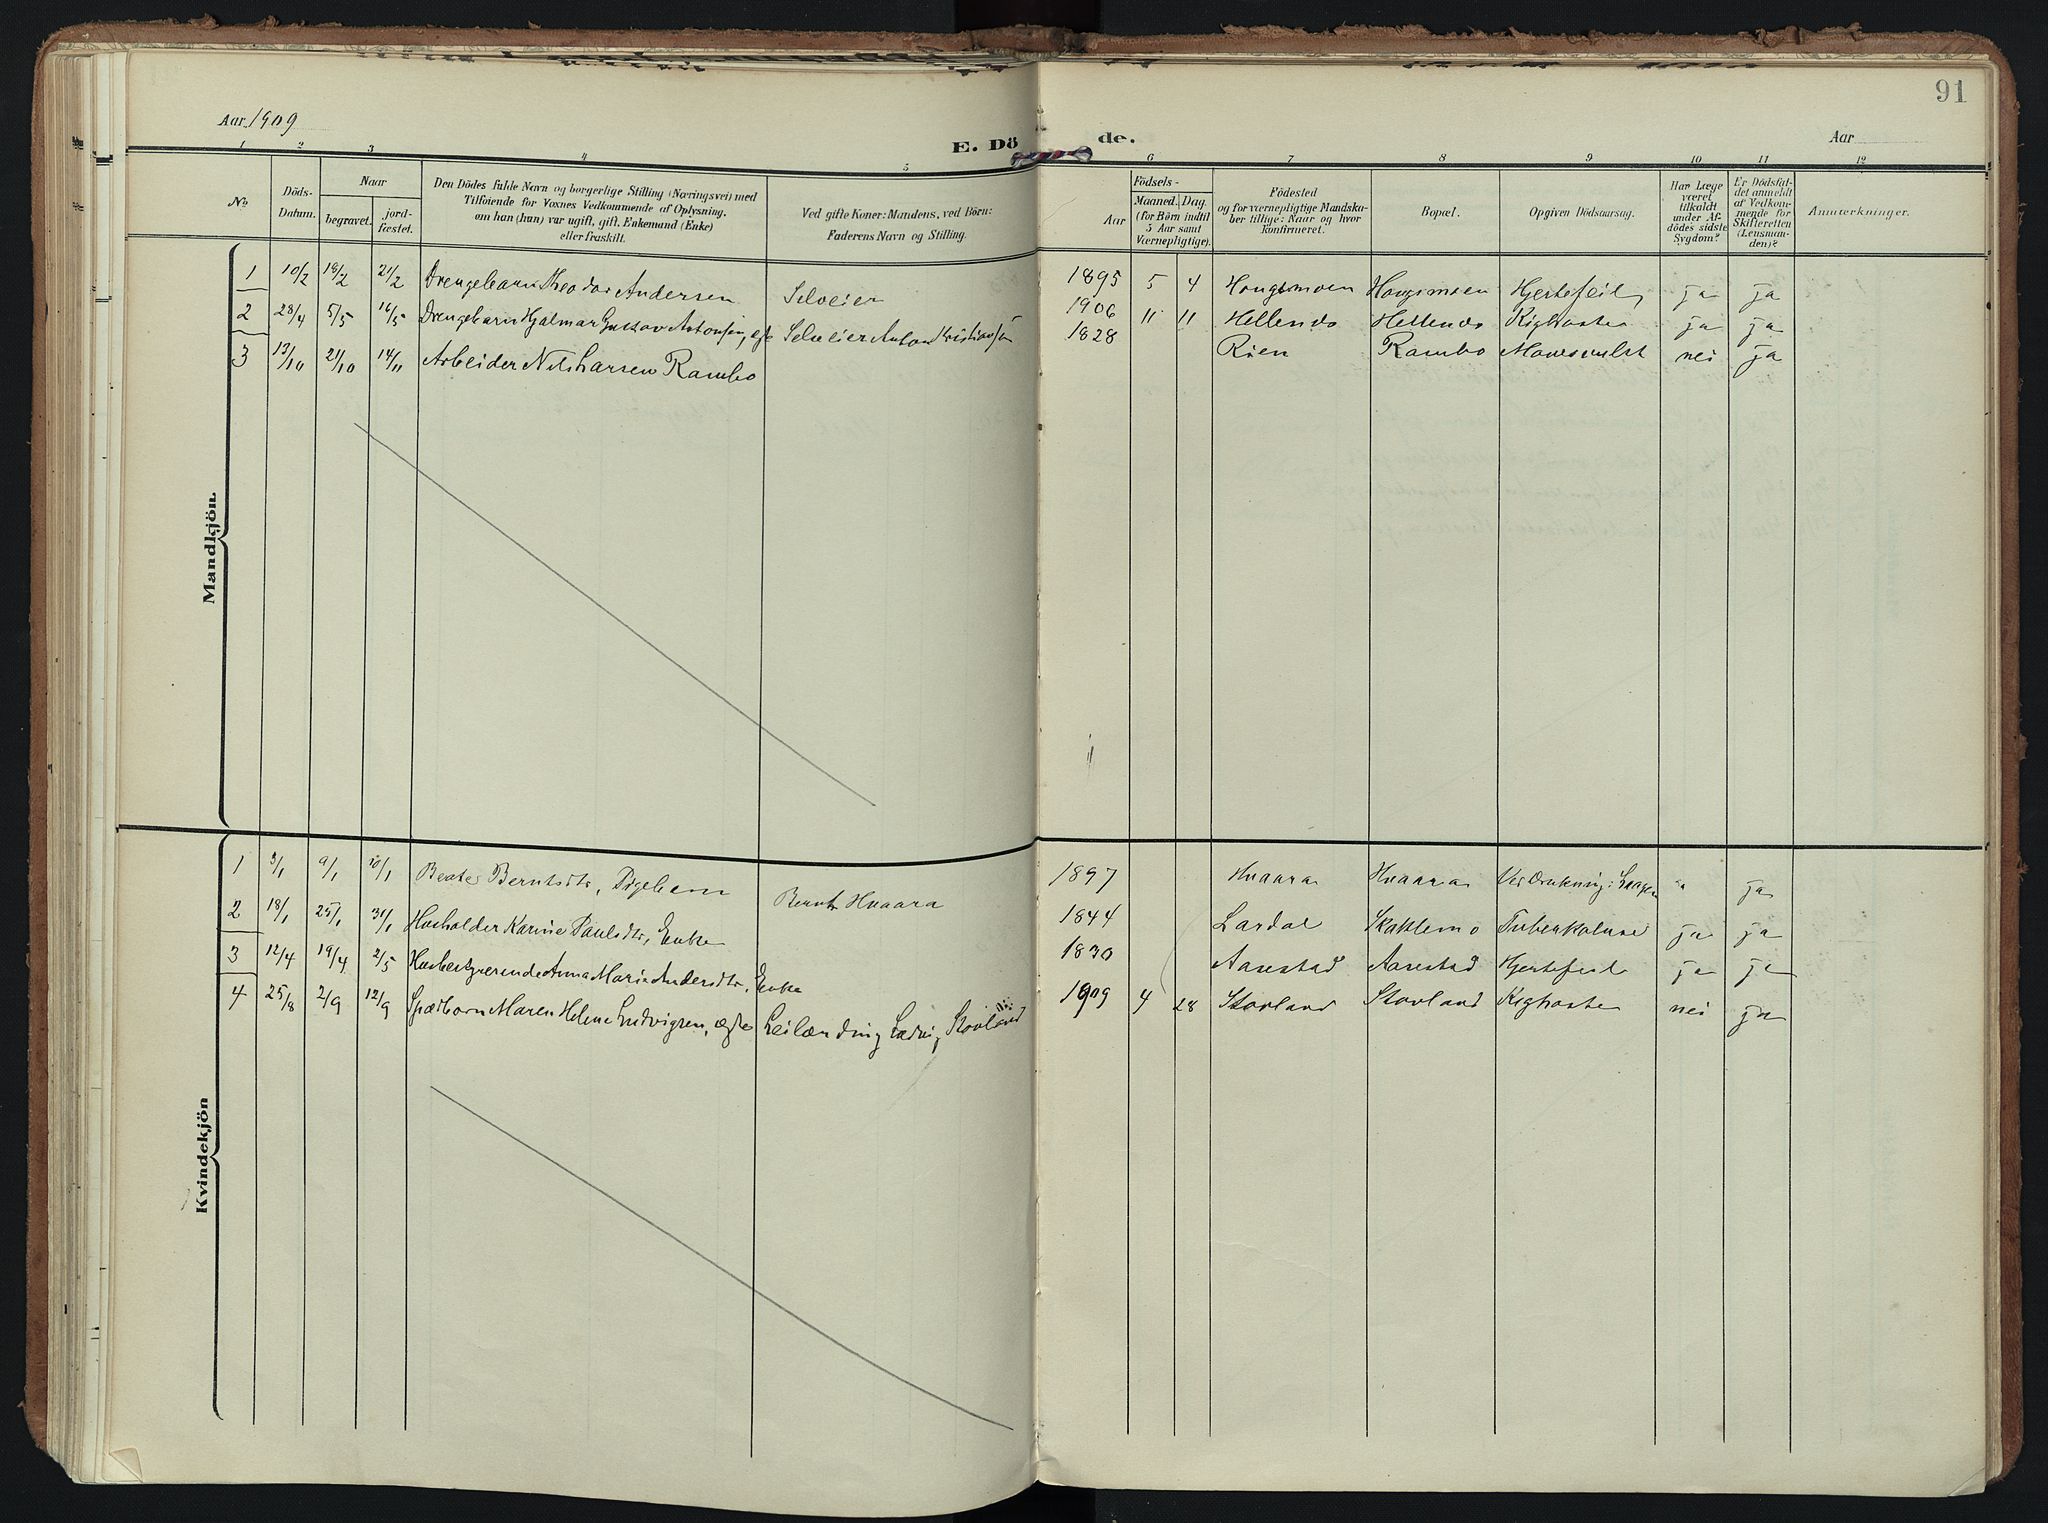 91
Aar 1909
E. Dö
de.
Aar
1 2 3 4 5 6 7 8 9 10 11 12
No.
Döds-
Datum.
Naar
begravet.
jord-
fæstet.
Den Dödes fulde Navn og borgerlige Stilling (Næringsvei) med
Tilföiende for Voxnes Vedkommende af Oplysning,
om han (hun) var ugift, gift, Enkemand (Enke)
eller fraskilt.
Ved gifte Koner: Mandens, ved Börn:
Faderens Navn og Stilling.
Födsels-
Aar
Maaned. Dag.
(for Börn indtil
5 Aar samt
Værnepligtige).
Födested
og for værnepligtige Mandska-
ber tillige: Naar og hvor
konfirmeret.
Bopæl.
Opgiven Dödsaarsag.
Har Læge
været
tilkaldt
under Af-
dödes sidste
Sygdom?
Er Dödsfal-
det anmeldt
af Vedkom-
mende for
Skifteretten
(Lensman-
den)?
Anmærkninger.
Mandkjön.
1 10/2 19/2 21/2 Drengebarn Theodor Andersen Selveier 1895 5 4 Hougsmoen Hougsmoen Hjertefeil ja ja
2 28/4 5/5 16/5 Drengebarn Hjalmar Gustav Antonsen, Selveier Anton Kristiansen 1906 11 11 Hellendo Hellendo Kighoste ja ja
3 13/10 21/10 14/11 Arbeider Nils Larsen Rambo 1828 Rien Rambo Mavesvulst nei ja
Kvindekjön
1 3/1 9/1 10/1 Beate Berntsdtr, Pigebarn Bernt Hvaara 1897 Hvaara Hvaara Ved Drukning: Laagen " ja
2 18/1 25/1 31/1 Husholder Karine Paulsdtr, Enke 1844 Lardal Skaklemo Tuberkulose ja ja
3 12/4 19/4 2/5 Husbestyrerinde Anna Marie Andersdtr, Enke 1830 Aarestad Aarestad Hjertefeil ja ja
4 25/8 2/9 12/9 Spædbarn Maren Helene Ludvigsen, ægte Leilænding Ludvig Stovland 1909 4 28 Stovland Stovland Kighoste nei ja